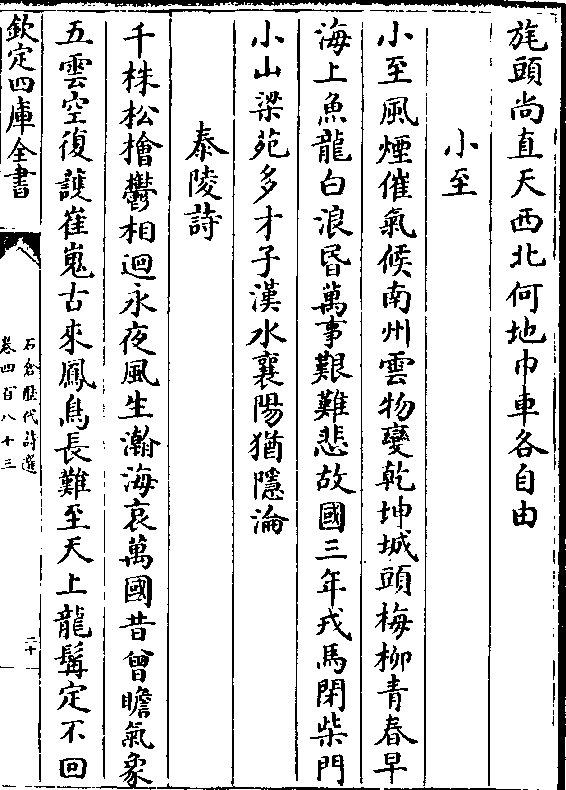 旄頭尚直天西北何地巾車各自由
小至
小至風煙催氣候南州雲物變乾坤城頭梅柳青春早
海上魚龍白浪昏萬事艱難悲故國三年戎馬閉柴門
小山梁苑多才子漢水襄陽猶隱淪
泰陵詩
千株松檜鬱相迴永夜風生瀚海哀萬國昔曾瞻氣象
五雲空復護崔嵬古來鳳鳥長難至天上龍髯定不回
欽定四庫全書
石倉歷代詩選
卷四百八十三
二十